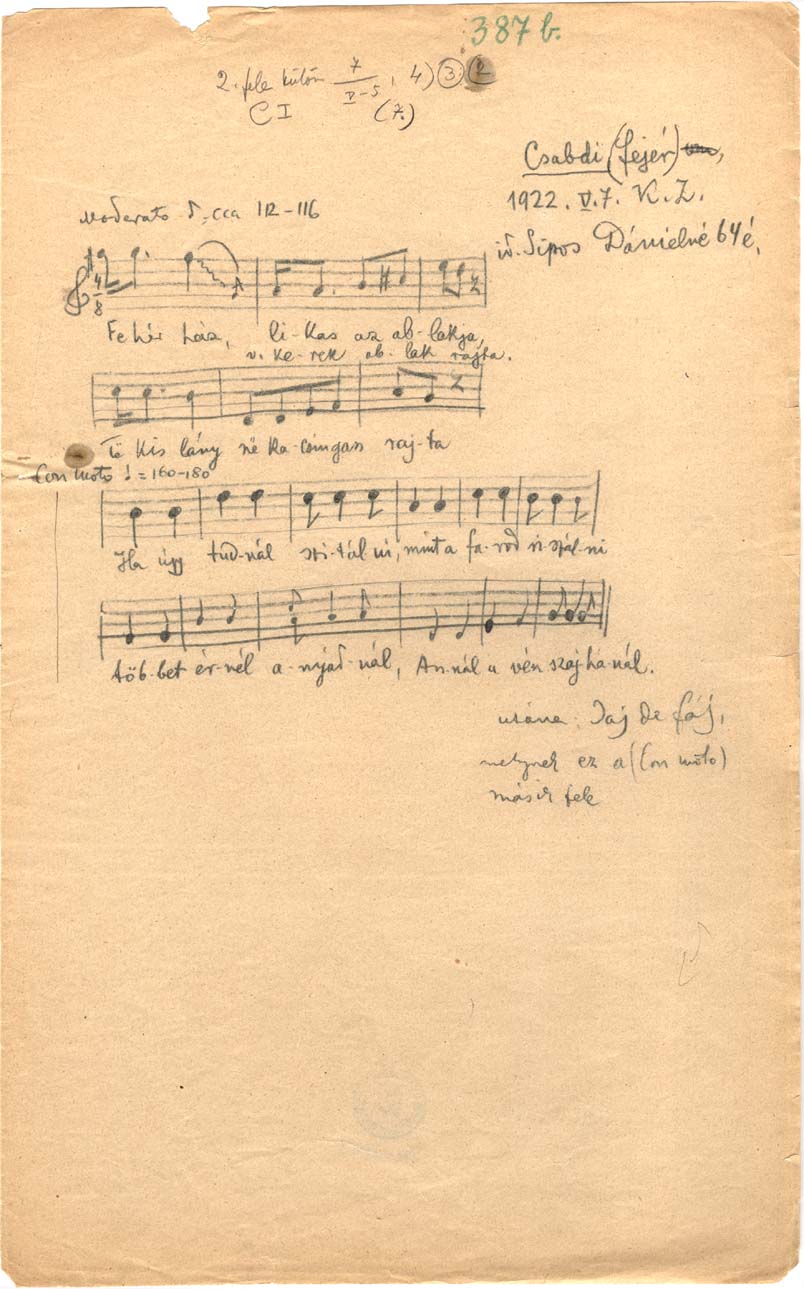 387 b.
2. fele külön 7/V-5, 4) 3 2
C I (7.)
Csabdi (Fejér)
1922. V. 7. K. Z.
id. Sipos Dánielné 64 é.
Moderato ♪ = cca 112-116
4/8
Fehér ház, li-kas az ab-lakja,
v. ke-rek ab-lak rajta.
Te kis lány ne ka-csingass raj-ta
Con moto ♩ = 160-180
Ha úgy tud-nál szi-tál-ni, mint a fa-rod ri-szál-ni
töb-bet ér-nél a-nyád-nál, An-nál a vén szaj-há-nál.
utána: Jaj de fáj,
melynek ez a (Con moto)
másik fele